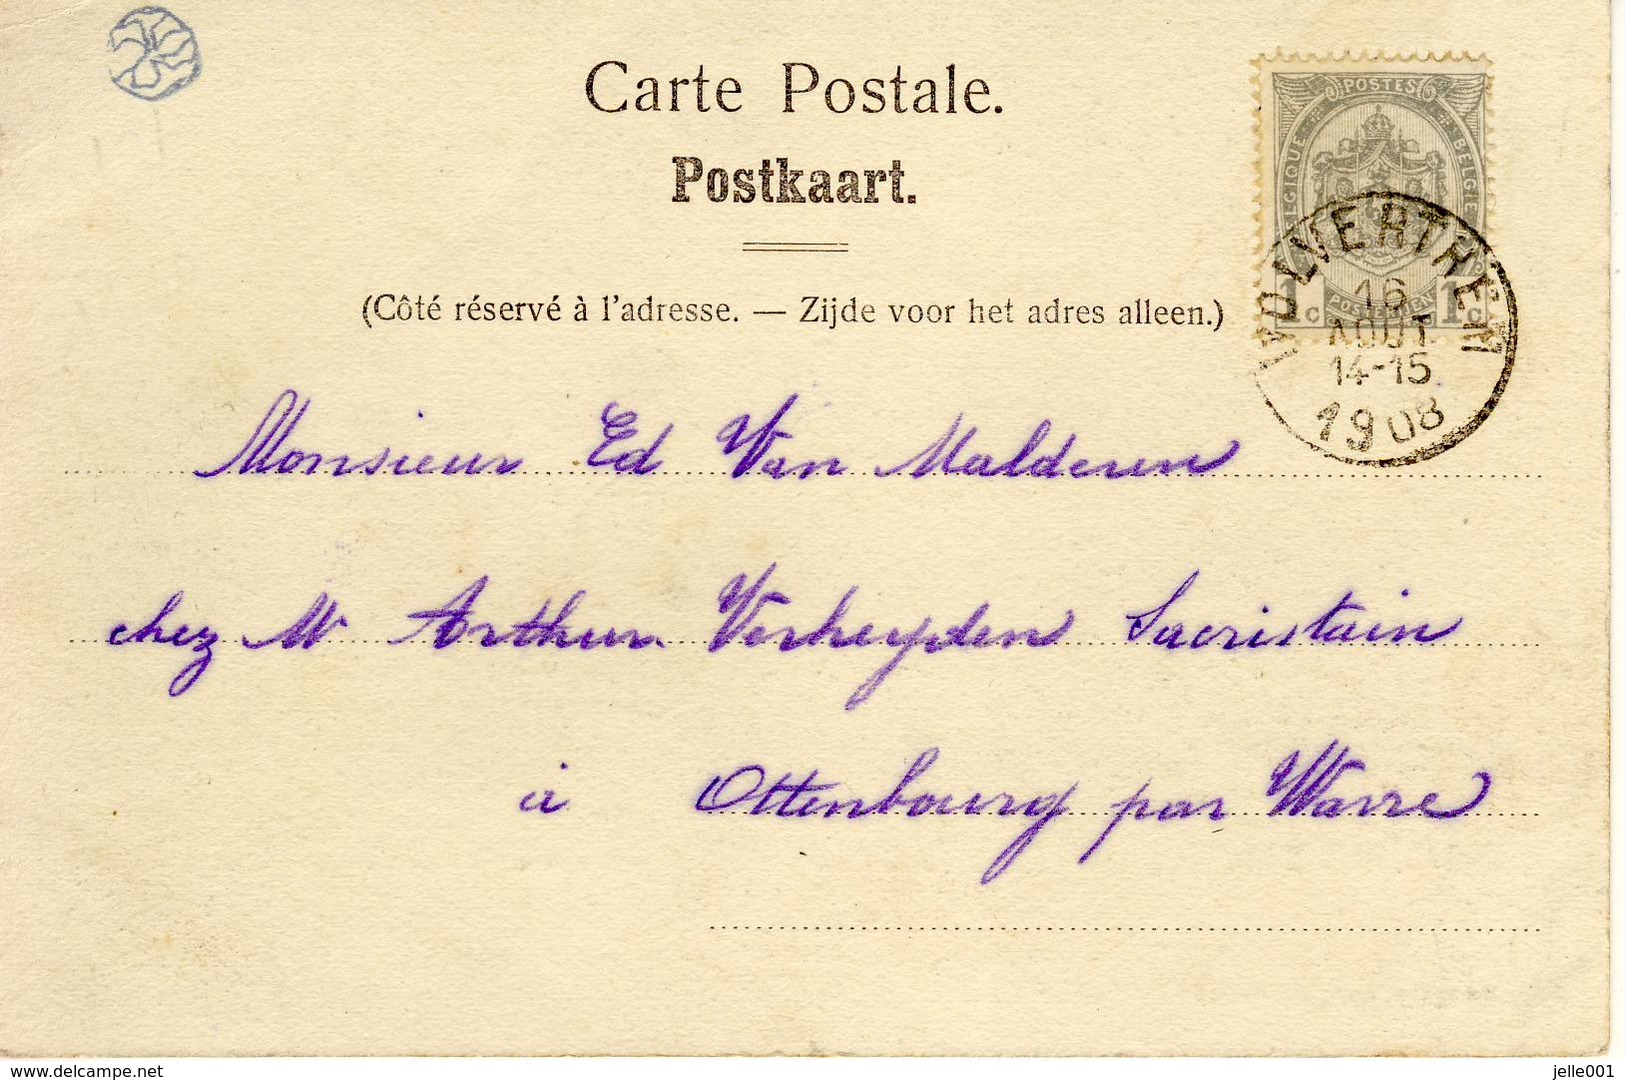 Carte Postale.
Postkaart.
(Côté réservé à l'adresse. — Zijde voor het adres alleen.)
POSTES
BELGIQUE
BELGIE
POSTERIJEN
1c
1c
WOLVERTHEM
16
AOUT
14-15
1908
Monsieur Ed Van Malderen
chez Mr Arthur Verheyden Sacristain
à Ottenbourg par Wavre
delcampe.net
jelle001